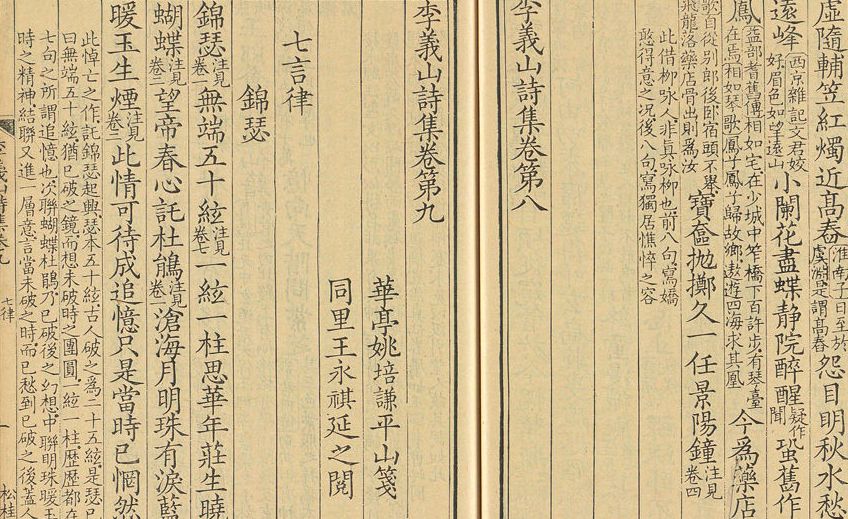 虛隨輔笠紅燭近髙舂
淮南子曰至於
虞淵是謂髙舂
怨目明秋水愁
遠峰
西京雜記文君姣
好眉色如望遠山
小闌花盡蝶靜院醉醒
疑作
聞
蛩舊作
鳳
益部耆舊傳相如宅在少城中笮橋下百許步有琴臺
在焉相如琴歌鳳子鳳子歸故鄉遨遊四海求其凰
今爲藥店
歌自從别郎後卧宿頭不舉
飛龍落藥店骨出則為汝
寶奩抛擲久一任景陽鐘
注見
卷四
此借柳咏人非真咏柳也前八句寫嬌
憨得意之况後八句寫獨居憔悴之容
李義山詩集卷第八
李義山詩集卷第九
華亭姚培謙平山箋
同里王永祺延之閲
七言律
錦瑟
錦瑟
注見
卷一
無端五十絃
注見
卷七
一絃一柱思華年莊生曉
蝴蝶
注見
卷二
望帝春心託杜鵑
注見
滄海月明珠有淚藍
暖玉生煙
注見
卷二
此情可待成追憶只是當時已惘然
此悼亡之作託錦瑟起興瑟本五十絃古人破之爲二十五絃是瑟已
曰無端五十絃猶已破之鏡而想未破時之團圓一絃一柱歴歴都在
七句之所謂追憶也次聯蝴蝶杜鵑乃已破後之幻想中聯明珠暖玉
時之精神結聯又進一層意言當未破之時而已愁到已破之後葢人
七律
一
松桂